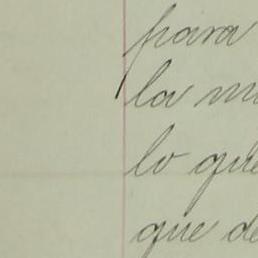 para
la
lo que
que de